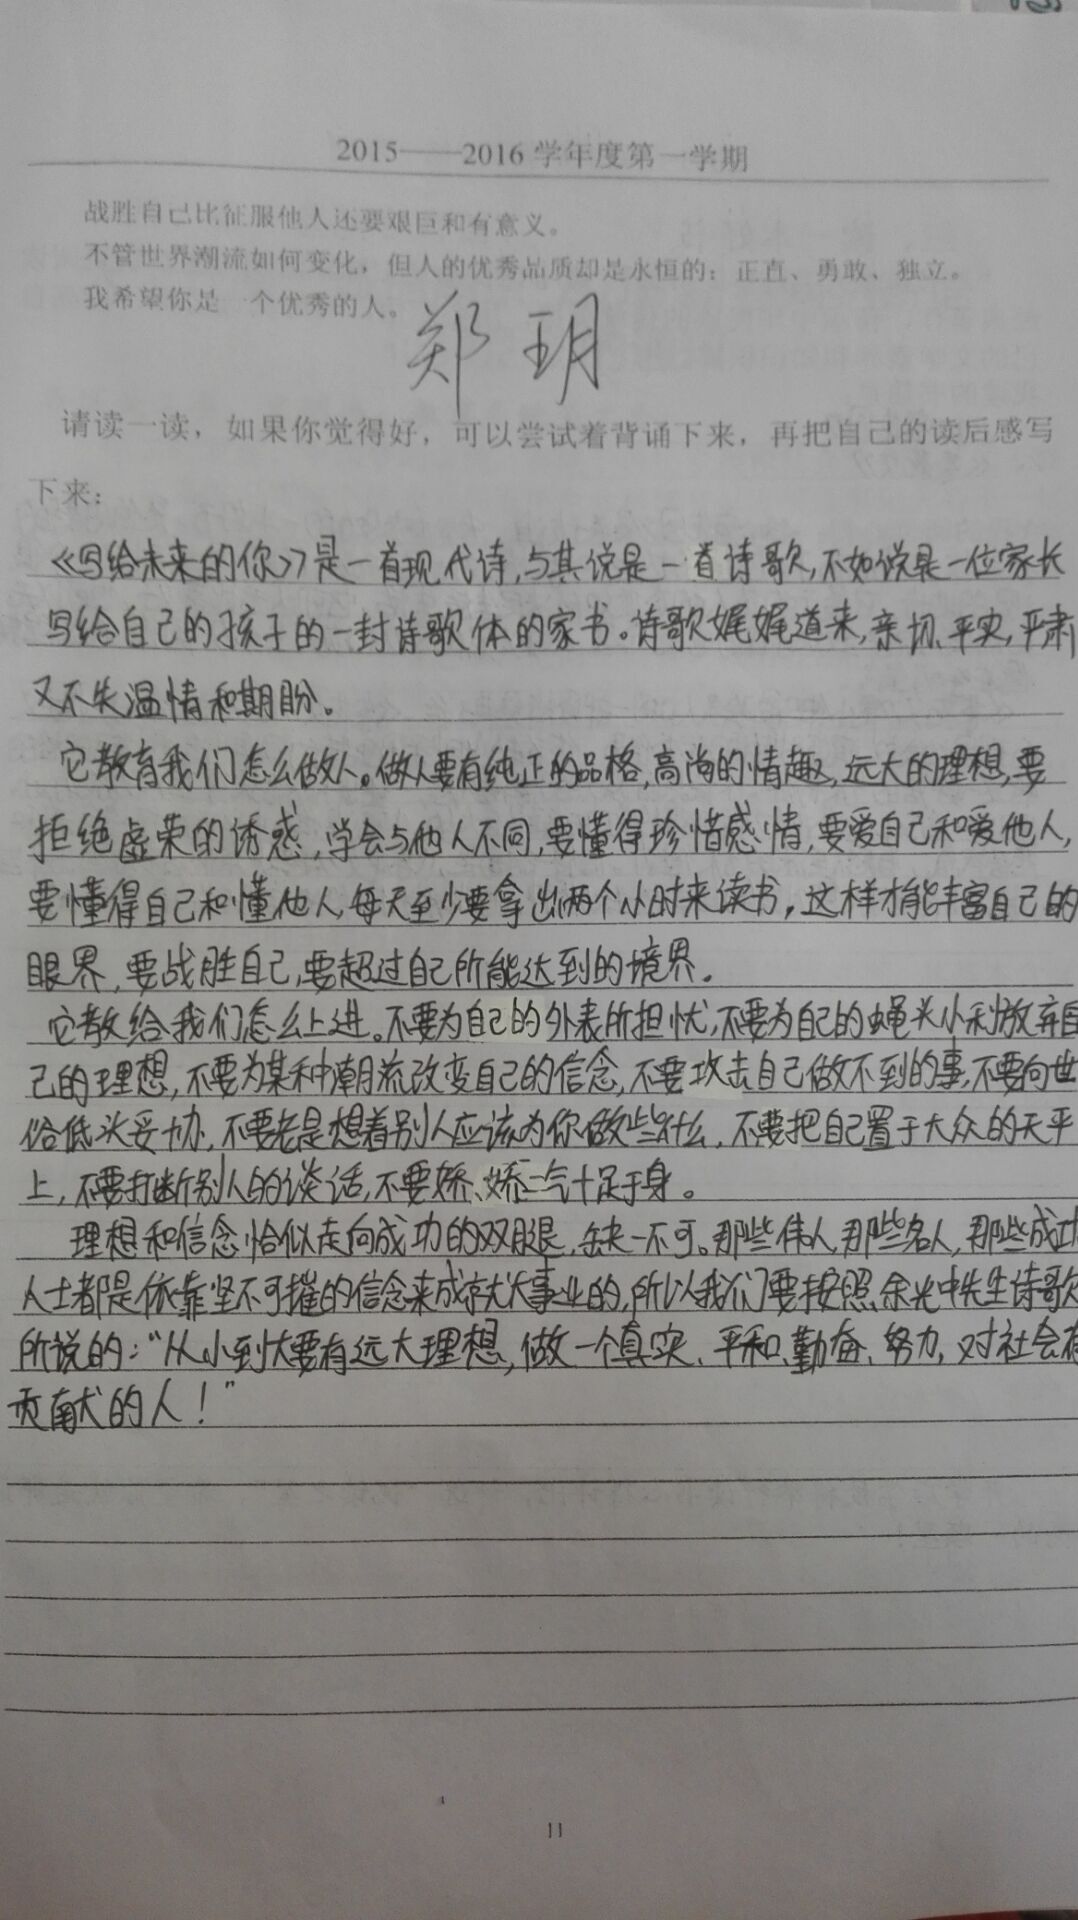 2015——2016 学年度第一学期
战胜自己比征服他人还要艰巨和有意义。
不管世界潮流如何变化，但人的优秀品质却是永恒的：正直、勇敢、独立。
我希望你是一个优秀的人。
郑玥
请读一读，如果你觉得好，可以尝试着背诵下来，再把自己的读后感写
下来：
《写给未来的你》是一首现代诗，与其说是一首诗歌，不如说是一位家长
写给自己的孩子的一封诗歌体的家书。诗歌娓娓道来，亲切、平实，严肃
又不失温情和期盼。
它教育我们怎么做人。做人要有纯正的品格，高尚的情趣，远大的理想，要
拒绝虚荣的诱惑，学会与他人不同，要懂得珍惜感情，要爱自己和爱他人，
要懂得自己和懂他人，每天至少要拿出两个小时来读书，这样才能丰富自己的
眼界，要战胜自己，要超过自己所能达到的境界。
它教给我们怎么上进。不要为自己的外表所担忧，不要为自己的蝇头小利放弃自
己的理想，不要为某种潮流改变自己的信念，不要攻击自己做不到的事，不要向世
俗低头妥协，不要老是想着别人应该为你做些什么，不要把自己置于大众的天平
上，不要打断别人的谈话，不要娇、娇二气十足于身。
理想和信念恰似走向成功的双腿，缺一不可。那些伟人，那些名人，那些成功
人士都是依靠坚不可摧的信念来成就大事业的，所以我们要按照余光中先生诗歌
所说的：“从小到大要有远大理想，做一个真实、平和、勤奋、努力，对社会有
贡献的人！”
11